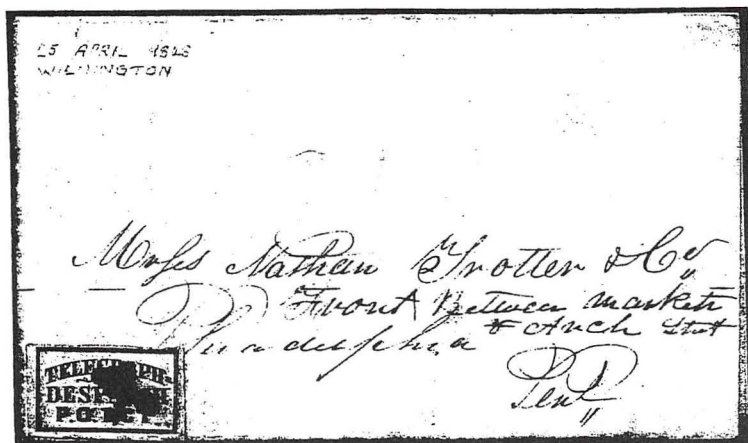 25 APRIL 1848
WILMINGTON
Messrs Nathan Trotter & Co
Front Between market
& Arch Street
Philadelphia
TELEGRAPH
DESPATCH
P.O.